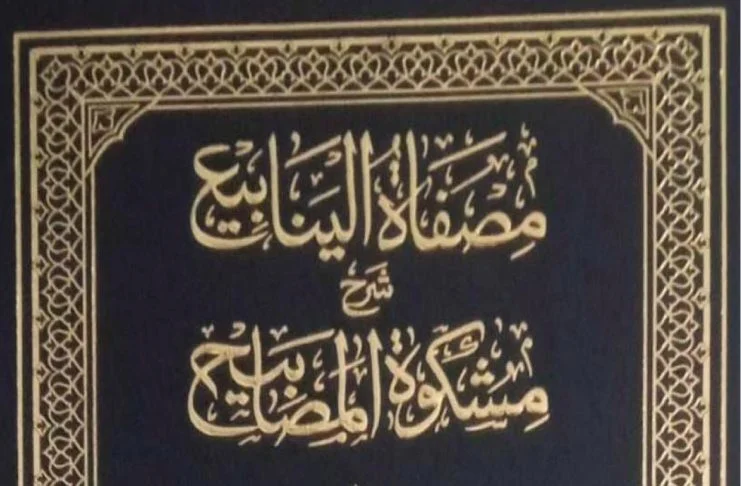 مِصْفَاةُ الْيَنَابِيع
شَرْح
مِشْكٰوةُ الْمَصَابِيح